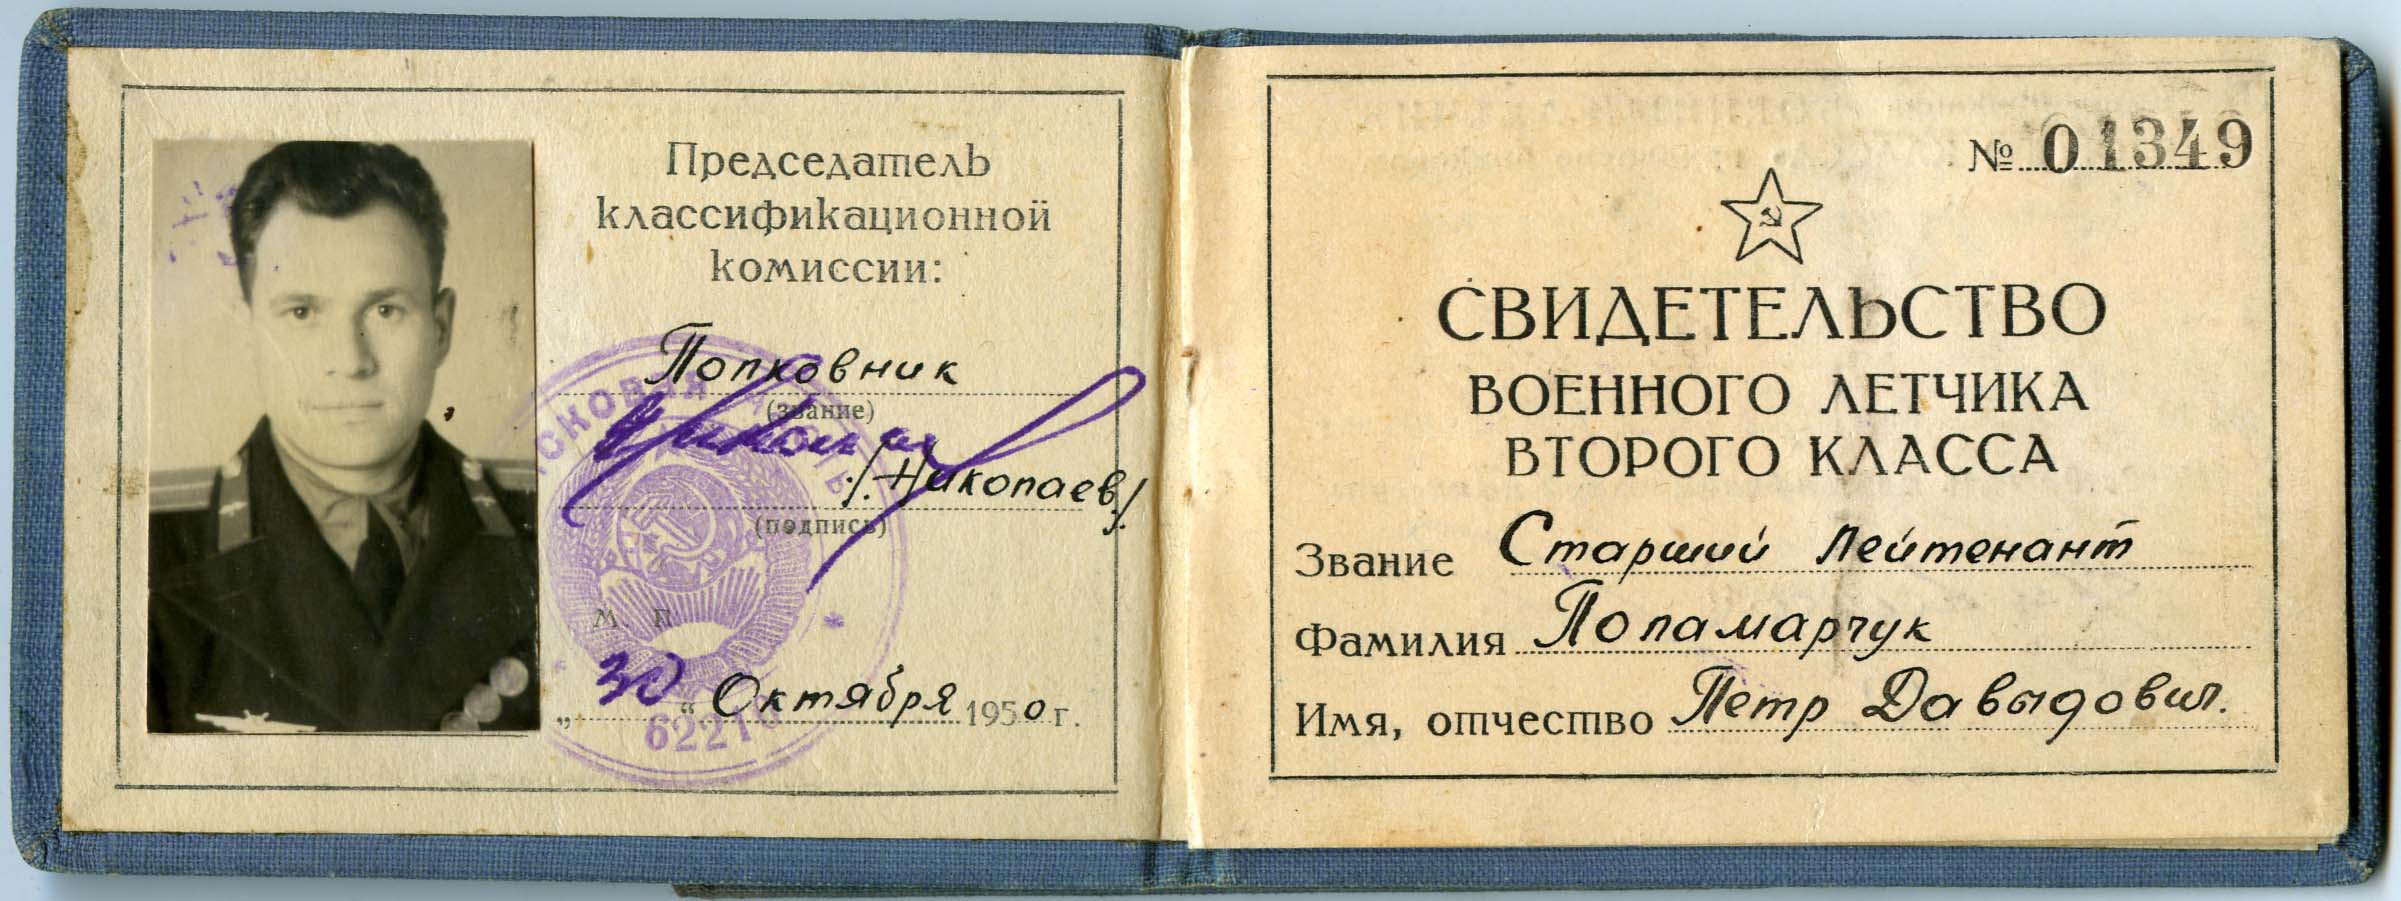 Председатель
классификационной
комиссии:
Полковник
(звание)
/Николаев/
(подпись)
М. П.
„30“ Октября 1950 г.
62210
№ 01349
СВИДЕТЕЛЬСТВО
ВОЕННОГО ЛЕТЧИКА
ВТОРОГО КЛАССА
Звание Старший лейтенант
Фамилия Поламарчук
Имя, отчество Петр Давыдович.